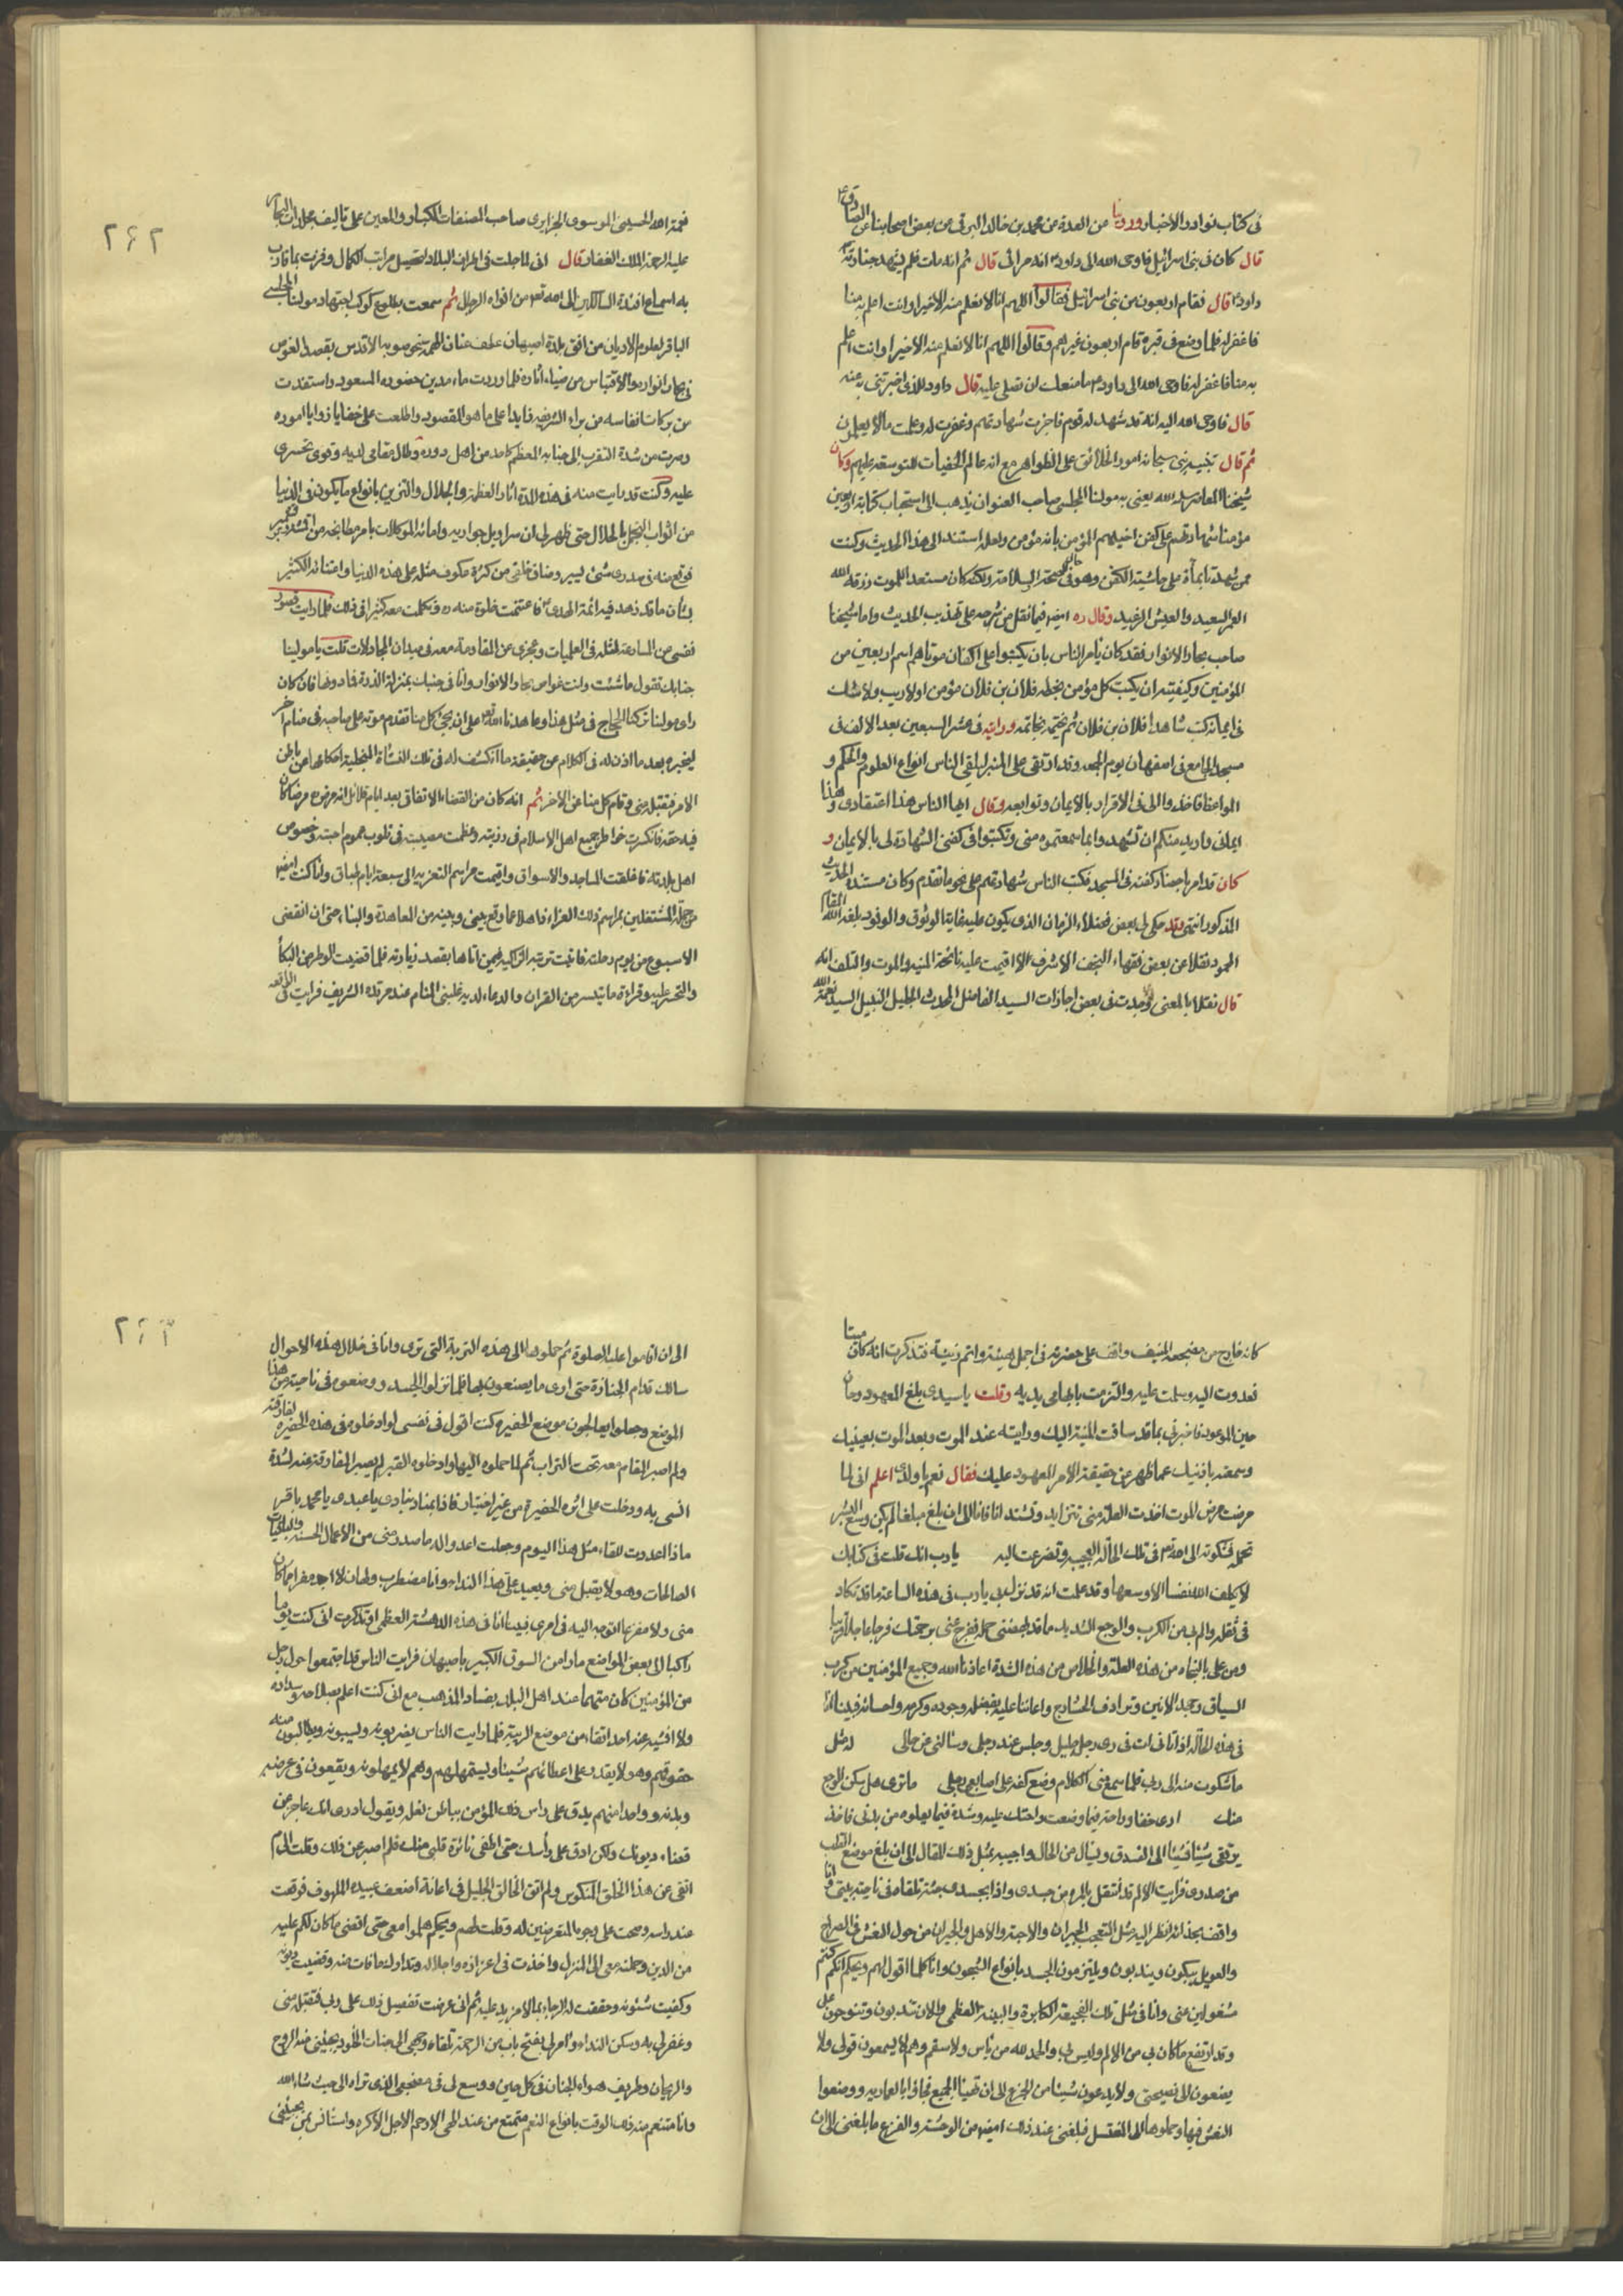 فى كتاب نوادر الاخبار وروينا من العدة عن محمد بن خالد البرقى عن بعض اصحابنا عن الصادق ع
قال كان فى بنى اسرائيل فاوحى الله الى داود انه مرائى قال ثم انه مات فلم يشهد جنازته
داود قال فقام اربعون من بنى اسرائيل فقالوا اللهم انا لا نعلم منه الا خيرا وانت اعلم به منا
فاغفر له فلما وضع فى قبره قام اربعون غيرهم وقالوا اللهم انا لا نعلم منه الا خيرا وانت اعلم
به منا فاغفر له فاوحى الله الى داود ما منعك ان تصلى عليه قال داود للذى اخبرتنى به عنه
قال فاوحى الله اليه انه قد شهد له قوم فاجزت شهادتهم وغفرت له وعلمت ما لا يعلمون
ثم قال سبحانه امور الخلائق على الظواهر مع انه عالم الخفيات للتوسعة عليهم وكان
شيخنا المعاصر سلمه الله يعنى به مولنا المجلسى صاحب العنوان يذهب الى استحباب كتابة اربعين
مؤمنا شهادتهم على كفن اخيهم المؤمن بانه مؤمن ولعله استند الى هذا الحديث وكنت
ممن شهد على حاشية الكفن وهو فى حال صحة السلامة ولكنه كان مستعدا للموت رزقه الله
العمر السعيد والعيش الرغيد وقال ره ايضا فيما نقل من شرحه على تهذيب الحديث واما شيخنا
صاحب بحار الانوار فقد كان يأمر الناس بان يكتبوا على اكفان موتاهم اسم اربعين من
المؤمنين وكيفيته ان يكتب كل مؤمن بخطه فلان بن فلان مؤمن اولا ريب ولا شك
فى ايمانه كتب شاهدا فلان بن فلان ثم يختمه بخاتمه ورايته فى عشر السبعين بعد الالف فى
مسجد الجامع فى اصفهان يوم الجمعة وقد ارتقى على المنبر ليلقى الناس انواع العلوم والحكم و
المواعظ فاخذ اولا فى الاقرار بالايمان وتوابعه وقال ايها الناس هذا اعتقادى وهذا
ايمانى واريد منكم ان تشهدوا بما سمعتموه منى وتكتبوا فى كفنى الشهادة لى بالايمان و
كان قد امر باحضار كفنه فى المسجد فكتب الناس شهادتهم على نحو ما تقدم وكان مستنده الحديث
المذكور انتهى وقد حكى لى بعض فضلاء الزمان الذى يكون عليه غاية الوثوق والوفود بلغه الله المقام
المحمود نقلا عن بعض فقهاء النجف الاشرف الا اقيمت عليه نائحة المنية والموت والتلف انه
قال نقلا بالمعنى وجدت فى بعض اجازات السيد الفاضل المحدث الجليل النبيل السيد نعمة الله
نعمة الله الحسينى الموسوى الجزايرى صاحب المصنفات الكبار والمعين على تأليف مجلدات البحار
عليه الرحمة الملك الغفار قال انى لما جلت فى اطراف البلاد لتحصيل مراتب الكمال وفزت بما قارب
به اسماع افئدة السالكين الى الله تعالى من افواه الرجال ثم سمعت بطلوع كوكب اجتهاد مولنا المجلسى
الباقر لعلوم الاديان من افق بلدة اصبهان عطف عنان الهمة نحو صوبه الاقدس بقصد الغوص
فى بحار انواره والاقتباس من ضياء اثاره فلما وردت ماء مدين حضوره المسعود واستفدت
من بركات انفاسه من براه الشريفة زايدا على ما هو المقصود واطلعت على خفايا زوايا اموره
وصرت من شدة التقرب الى جنابه المعظم كاحد من اهل دوره وطال مقامى لديه وقوى تجسرى
عليه وكنت قد رايت منه فى هذه المدة اثار العظمة والجلال والتزين بانواع ما يكون فى الدنيا
من اثواب التجمل بالحلال حتى ظهر لى ان سراويل جواريه وامائه الموكلات بامر مطابخه من اقمشة كشمير
فوقع منه فى صدرى شئ يسير وضاق خلقى من كثرة عكوف مثله على هذه الدنيا واعتنائه الكثير
بشأن ما قد زهد فيه ائمة الهدى فاغتنمت خلوة منه ره وتكلمت معه كثيرا فى ذلك فلما رايت قصور
نفسى من المسارعة لمثله فى العلميات وعجزى عن المقاومة معه فى ميدان المجادلات قلت يا مولينا
جنابك تقول ما شئت وانت غواص بحار الانوار وانا فى جنبك بمنزلة الذرة فما دونها فان كان
راى مولنا تركنا الحجاج فى مثل هذا وعاهدنا الله على ان يجئ كل منا تقدم موته على صاحبه فى منام اخر
ليخبره بعد ما اذن له فى الكلام عن حقيقة ما انكشف له فى تلك النشأة المتجلية احكامها عن باطن
الامر فتقبل منى وقام كل منا عن الاخر ثم انه كان من القضايا الاتفاق بعد ايام قلائل انه مرض مرضا كان
فيه حتفه فانكسرت خواطر جميع اهل الاسلام فى رزيته وعظمت مصيبته فى قلوب عموم احبته وخصوص
اهل بلدته فاغلقت المساجد والاسواق واقيمت مراسم التعزية الى سبعة ايام طباق وانا كنت ايضا
من جملة المشتغلين بمراسم ذلك العزاء ذاهلا عما وقع بينى وبينه من المعاهدة والبناء حتى ان انقضى
الاسبوع من يوم رحلته فاتيت تربته الزاكية فيمن اتاها بقصد زيارته فلما قضيت الوطر من البكاء
والتحسر عليه وقراءة ما تيسر من القران والدعاء لديه غلبنى المنام عند مرقده الشريف فرايت فى الواقعة
كانه خارج من مضجعه المنيف واقف على حضرته فى اجمل هيئة واتم زينة فتذكرت انه كان ميتا
فعدوت اليه وسلمت عليه والتزمت بابهامى يديه وقلت يا سيدى بلغ المعهود وحان
حين الموعود فاخبرنى بما قد ساقت المنية اليك ورايته عند الموت وبعد الموت بعينيك
وسمعته باذنيك عما ظهر عن حقيقة الامر المعهود عليك فقال نعم يا ولدى اعلم انى لما
مرضت مرض الموت اخذت العلة منى تتزايد وتشتد انا فانا الى ان بلغ مبلغا لم يكن وسع البشر
تحمله فشكوته الى الله تعالى فى تلك الحالة العجيبة وتضرعت اليه يا رب انك قلت فى كتابك
لا يكلف الله نفسا الا وسعها وقد علمت انه قد نزل بى يا رب فى هذه الساعة ما قد تكاد
فى ثقله والم بى من الكرب والوجع الشديد ما قد بهضنى حمله ففرج عنى برحمتك فرجا عاجلا قريبا
ومن على بالنجاة من هذه العلة والخلاص من هذه الشدة اعاذنا الله وجميع المؤمنين من كرب
السياق وجهد الانين وترادف الحشارج واعاننا عليه بفضله وجوده وكرمه واحسانه فبينا انا
فى هذه الحالة اذ اتانى ات فى زى رجل جليل وجلس عند رجلى وسالنى عن حالى له مثل
ما شكوت منه الى ربى فلما سمع منى الكلام وضع كفه على اصابع رجلى ما ترى هل سكن الوجع
منك ارى خفا وراحة فيما وضعت راحتك عليه وشدة فيما يعلوه من بدنى فاخذ
يرتقى شيئا فشيئا الى الفوق ويسال من الحال واجيبه بمثل ذلك المقال الى ان بلغ موضع القلب
من صدرى فرايت الالم قد انتقل بالمرة من جسدى واذا بجسدى جثة ملقاة فى ناحية بيتى وانا
واقف بحذائه انظر اليه مثل المتعجب الحيران والاحبة والاهل والجيران من حول النعش فى الصراخ
والعويل يبكون ويندبون ويلتزمون الجسد بانواع الشجون وانا كلما اقول لهم ويحكم انكم كنتم
مشغولين عنى وانا فى مثل تلك الفجيعة الكابرة والبينة العظمى والان تندبون وتنوحون على
وقد ارتفع ما كان بى من الالم وليس بى والحمد لله من باس ولا سقم وهم لا يسمعون قولى ولا
يصغون الى نصيحتى ولا يدعون شيئا من الجزع الى ان تهيأ الجميع فجاؤا بالعمارية ووضعوا
النعش فيها وحملوها الى المغتسل فبلغنى عند ذلك ايضا من الوحشة والفزع ما بلغنى الى ان
الى ان اقاموا عليه الصلوة ثم حملوها الى هذه التربة التى ترى وانا فى خلال هذه الاحوال
سالك قدام الجنازة حتى ارى ما يصنعون بها فلما نزلوا الجسد ووضعوه فى ناحية من هذا
الموضع وجعلوا يعالجون موضع الحفيرة كنت اقول فى نفسى لو ادخلوه فى هذه الحفيرة لفارقته
ولم اصبر المقام معه تحت التراب ثم لما حملوه اليها وادخلوه القبر لم يصبر المفارقة عنه لشدة
انسى به ودخلت على اثره الحفيرة من غير اختيار فاذا بمناد ينادى يا عبدى يا محمد باقر
ماذا اعددت للقاء مثل هذا اليوم وجعلت اعد له ما صدر منى من الاعمال الحسنة والباقيات
الصالحات وهو لا يقبل منى ويعيد على هذا النداء وانا مضطرب ولهان لا اجد مفرا مما كان
منى ولا مفزعا اتوجه اليه فى امرى فبينا انا فى هذه الدهشة العظمى اذ تذكرت انى كنت يوما
راكبا الى بعض المواضع مارا من السوق الكبير باصبهان فرايت الناس قد اجتمعوا حول رجل
من المؤمنين كان متهما عند اهل البلد بفساد المذهب مع انى كنت اعلم بصلاحه وسداده
ولا افشيه عند احد اتقاء من موضع الريبة فلما رايت الناس يضربونه ويسبونه ويطالبون منه
حقوقهم وهو لا يقدر على اعطائهم شيئا ويستمهلهم وهم لا يمهلونه ويقعون فى عرضه
وبدنه وواحد منهم يدق على راس ذلك المؤمن بباطن نعله ويقول ادرى انك عاجز عن
قضاء ديونك ولكن ادق على رأسك حتى اطفى نائرة قلبى منك فلم اصبر عن ذلك وقلت الى م
اتقى عن هذا الخلق المنكوس ولم اتق الخالق الجليل فى اعانة اضعف عبيده الملهوف فوقفت
عند راسه وصحت على وجوه المتعرضين له وقلت لهم ويحكم هلموا معى حتى اقضى ما كان لكم عليه
من الدين وحملته معى الى المنزل واخذت فى اعزازه واجلاله وتدارك ما فات منه وقضيت ديونه
وكفيت شئونه وحققت له الرجاء بما لا مزيد عليه ثم انى عرضت تفصيل ذلك على ربى فتقبله منى
وغفر لى به وسكن النداء وامر لى بفتح باب من الرحمة تلقاء وجهى الى جنات الخلود يجيئنى منه الروح
والريحان وطريف هواء الجنان فى كل حين ووسع لى فى مضجعى الذى تراه الى حيث شاء الله
وانا متنعم منذ ذلك الوقت بانواع النعم متمتع من عند الهى الارحم الاجل الاكرم واستأنس بمن يجيئنى
٢٦٢